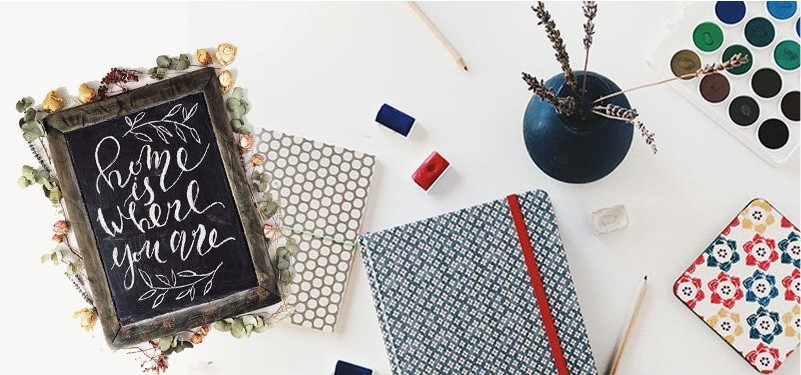 home
is
where
you are